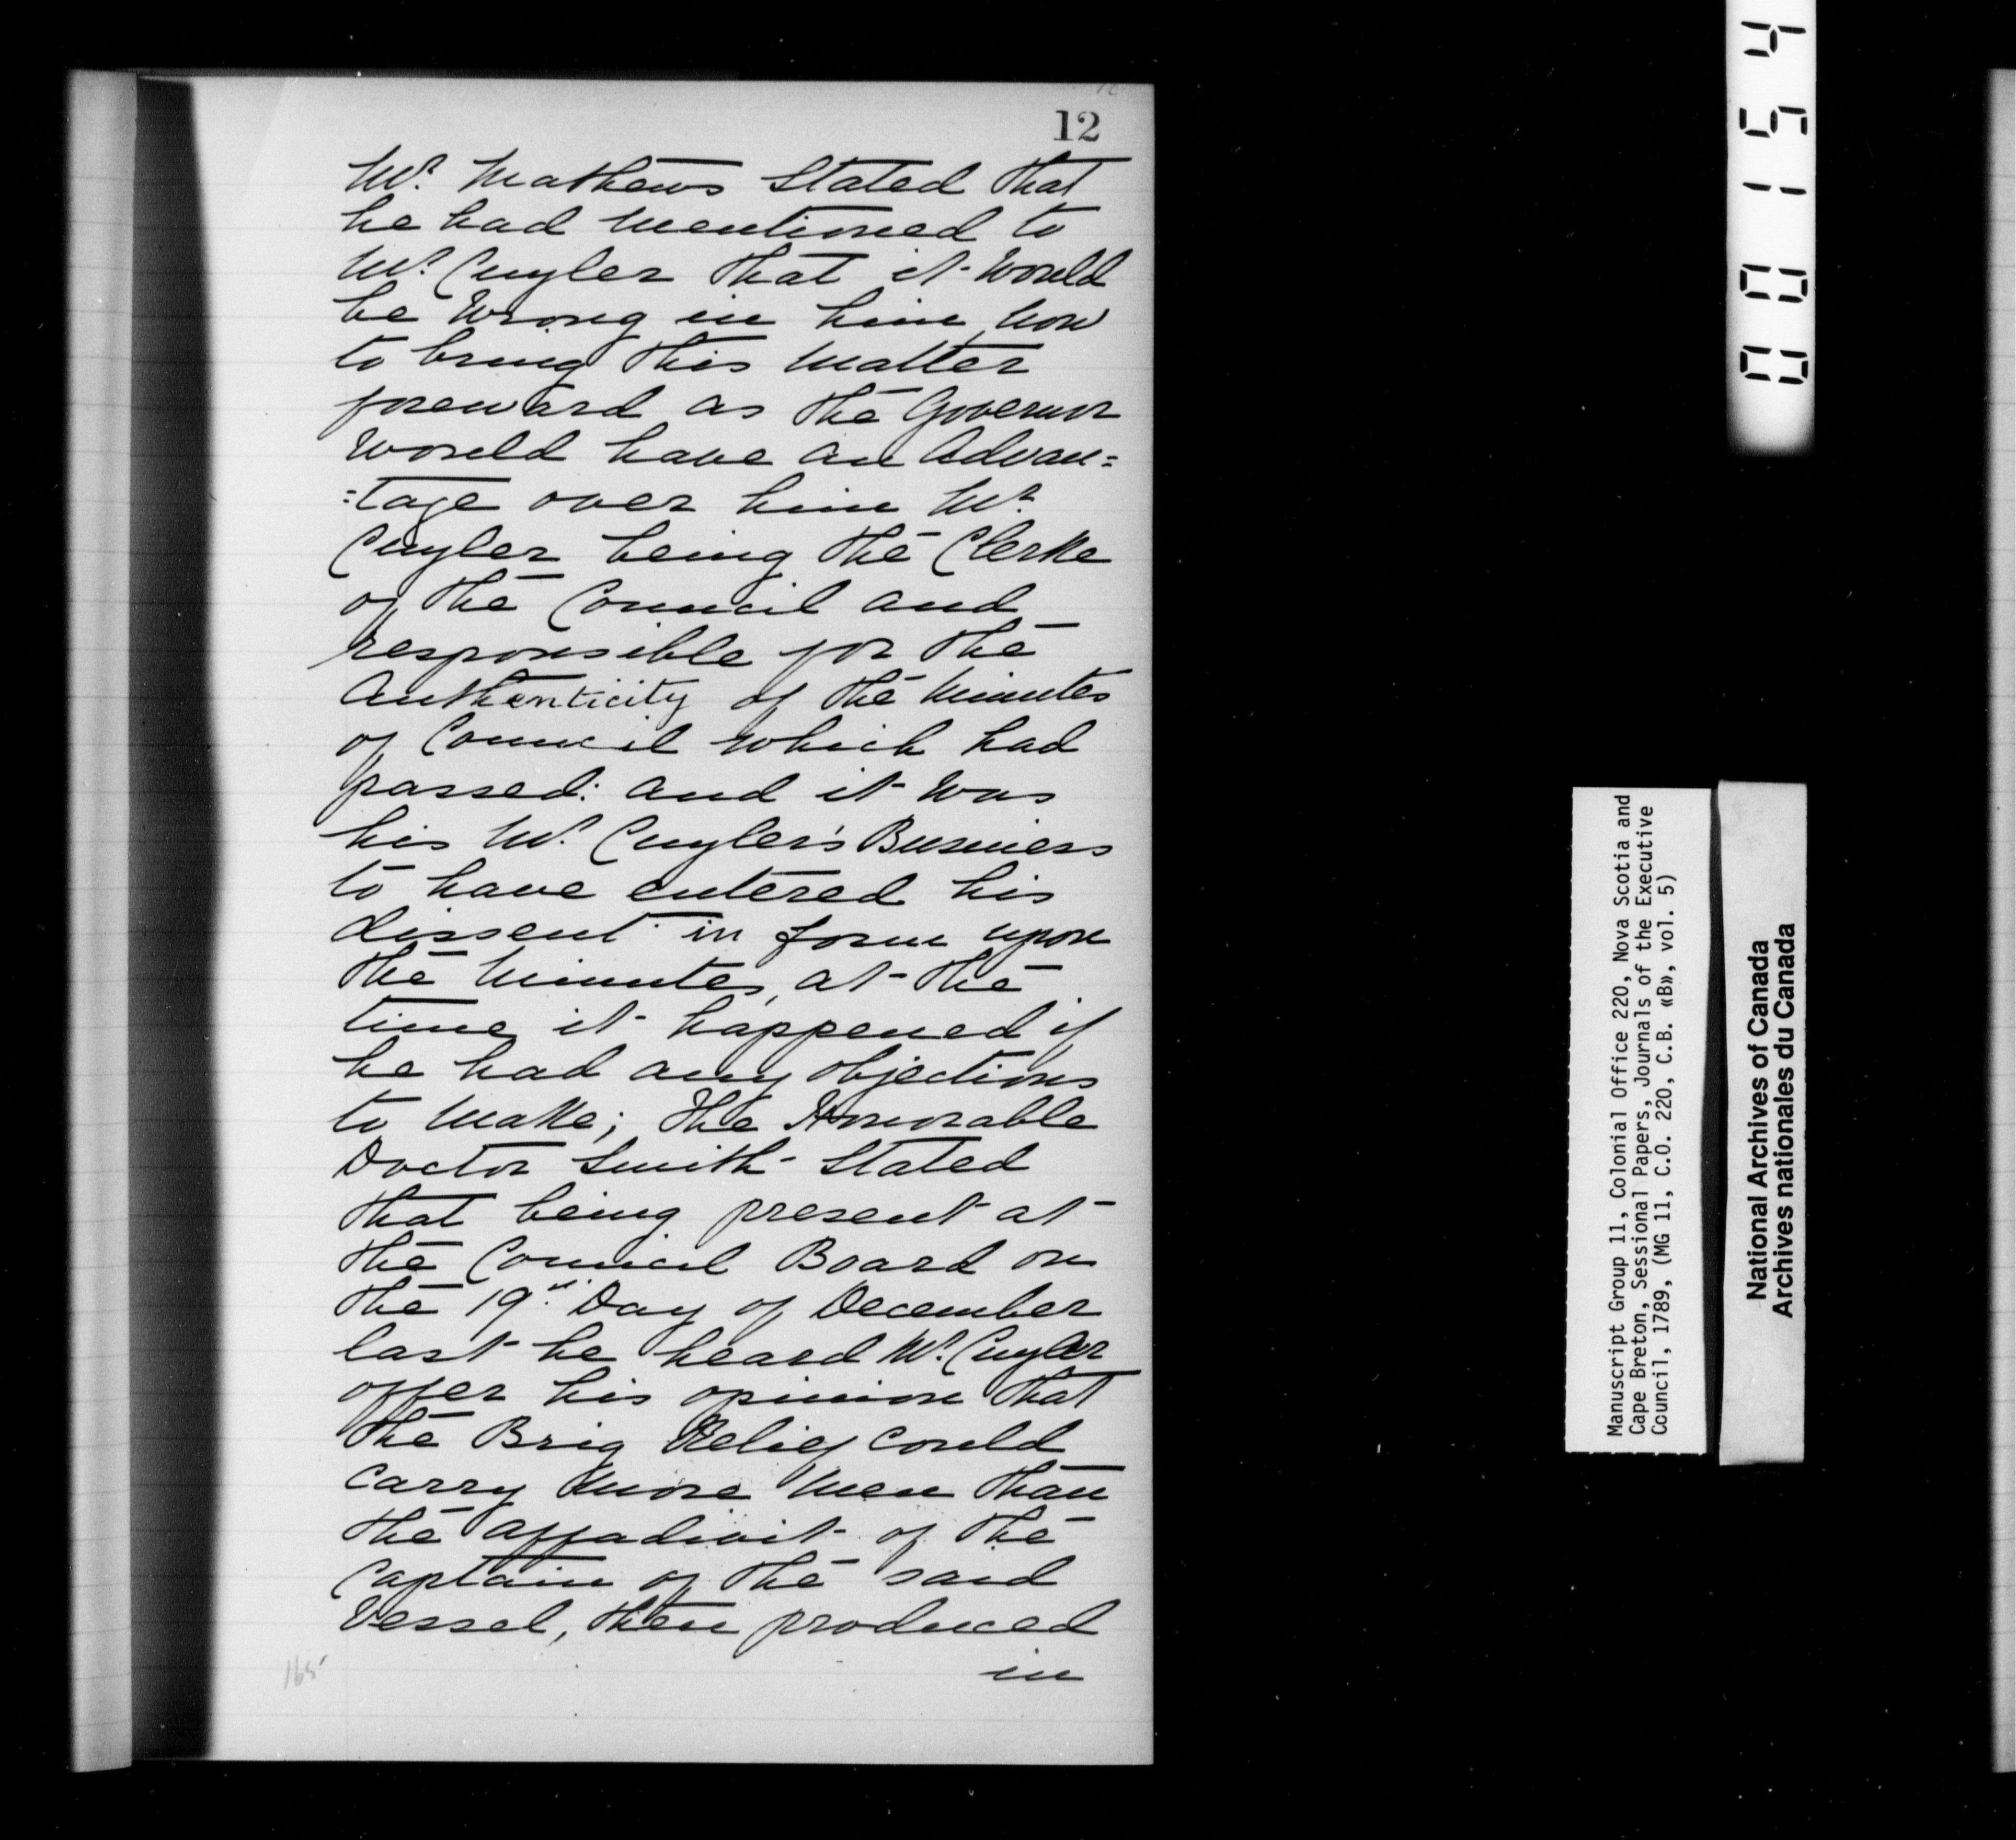 12
Mr. Mathews Stated that
he had Mentioned to
Mr. Cuyler that it Would
be Wrong in him Now
to bring this Matter
foreward as the Governor
Would have an Advan=
=tage over him Mr.
Cuyler being the Clerke
of the Council and
responsible for the
Authenticity of the Minutes
of Council which had
passed: and it Was
his Mr. Cuyler's Business
to have entered his
dissent in form upon
the Minutes, at the
time it happened if
he had any objections
to Make; The Honorable
Doctor Smith Stated
that being present at
the Council Board on
the 19th Day of December
last he heard Mr. Cuyler
offer his opinion that
the Brig Relief Could
Carry More Men than
the affadivit of the
Captain of the said
Vessel, then produced
in
165
00154
Manuscript Group 11, Colonial Office 220, Nova Scotia and
Cape Breton, Sessional Papers, Journals of the Executive
Council, 1789, (MG 11, C.O. 220, C.B. «B», vol. 5)
National Archives of Canada
Archives nationales du Canada